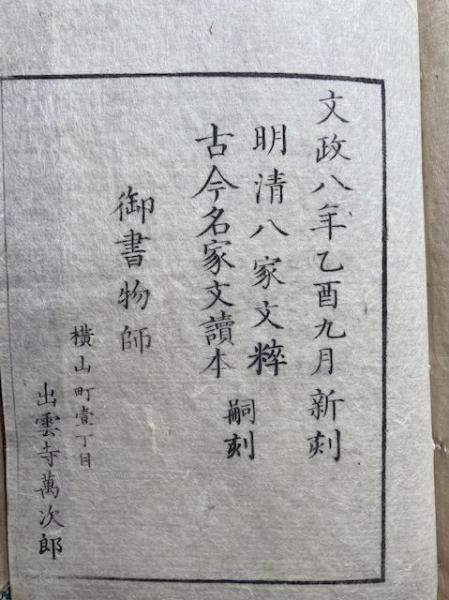 文政八年乙酉九月新刻
明清八家文粹
古今名家文讀本
嗣刻
御書物師
橫山町壹丁目
出雲寺萬次郎